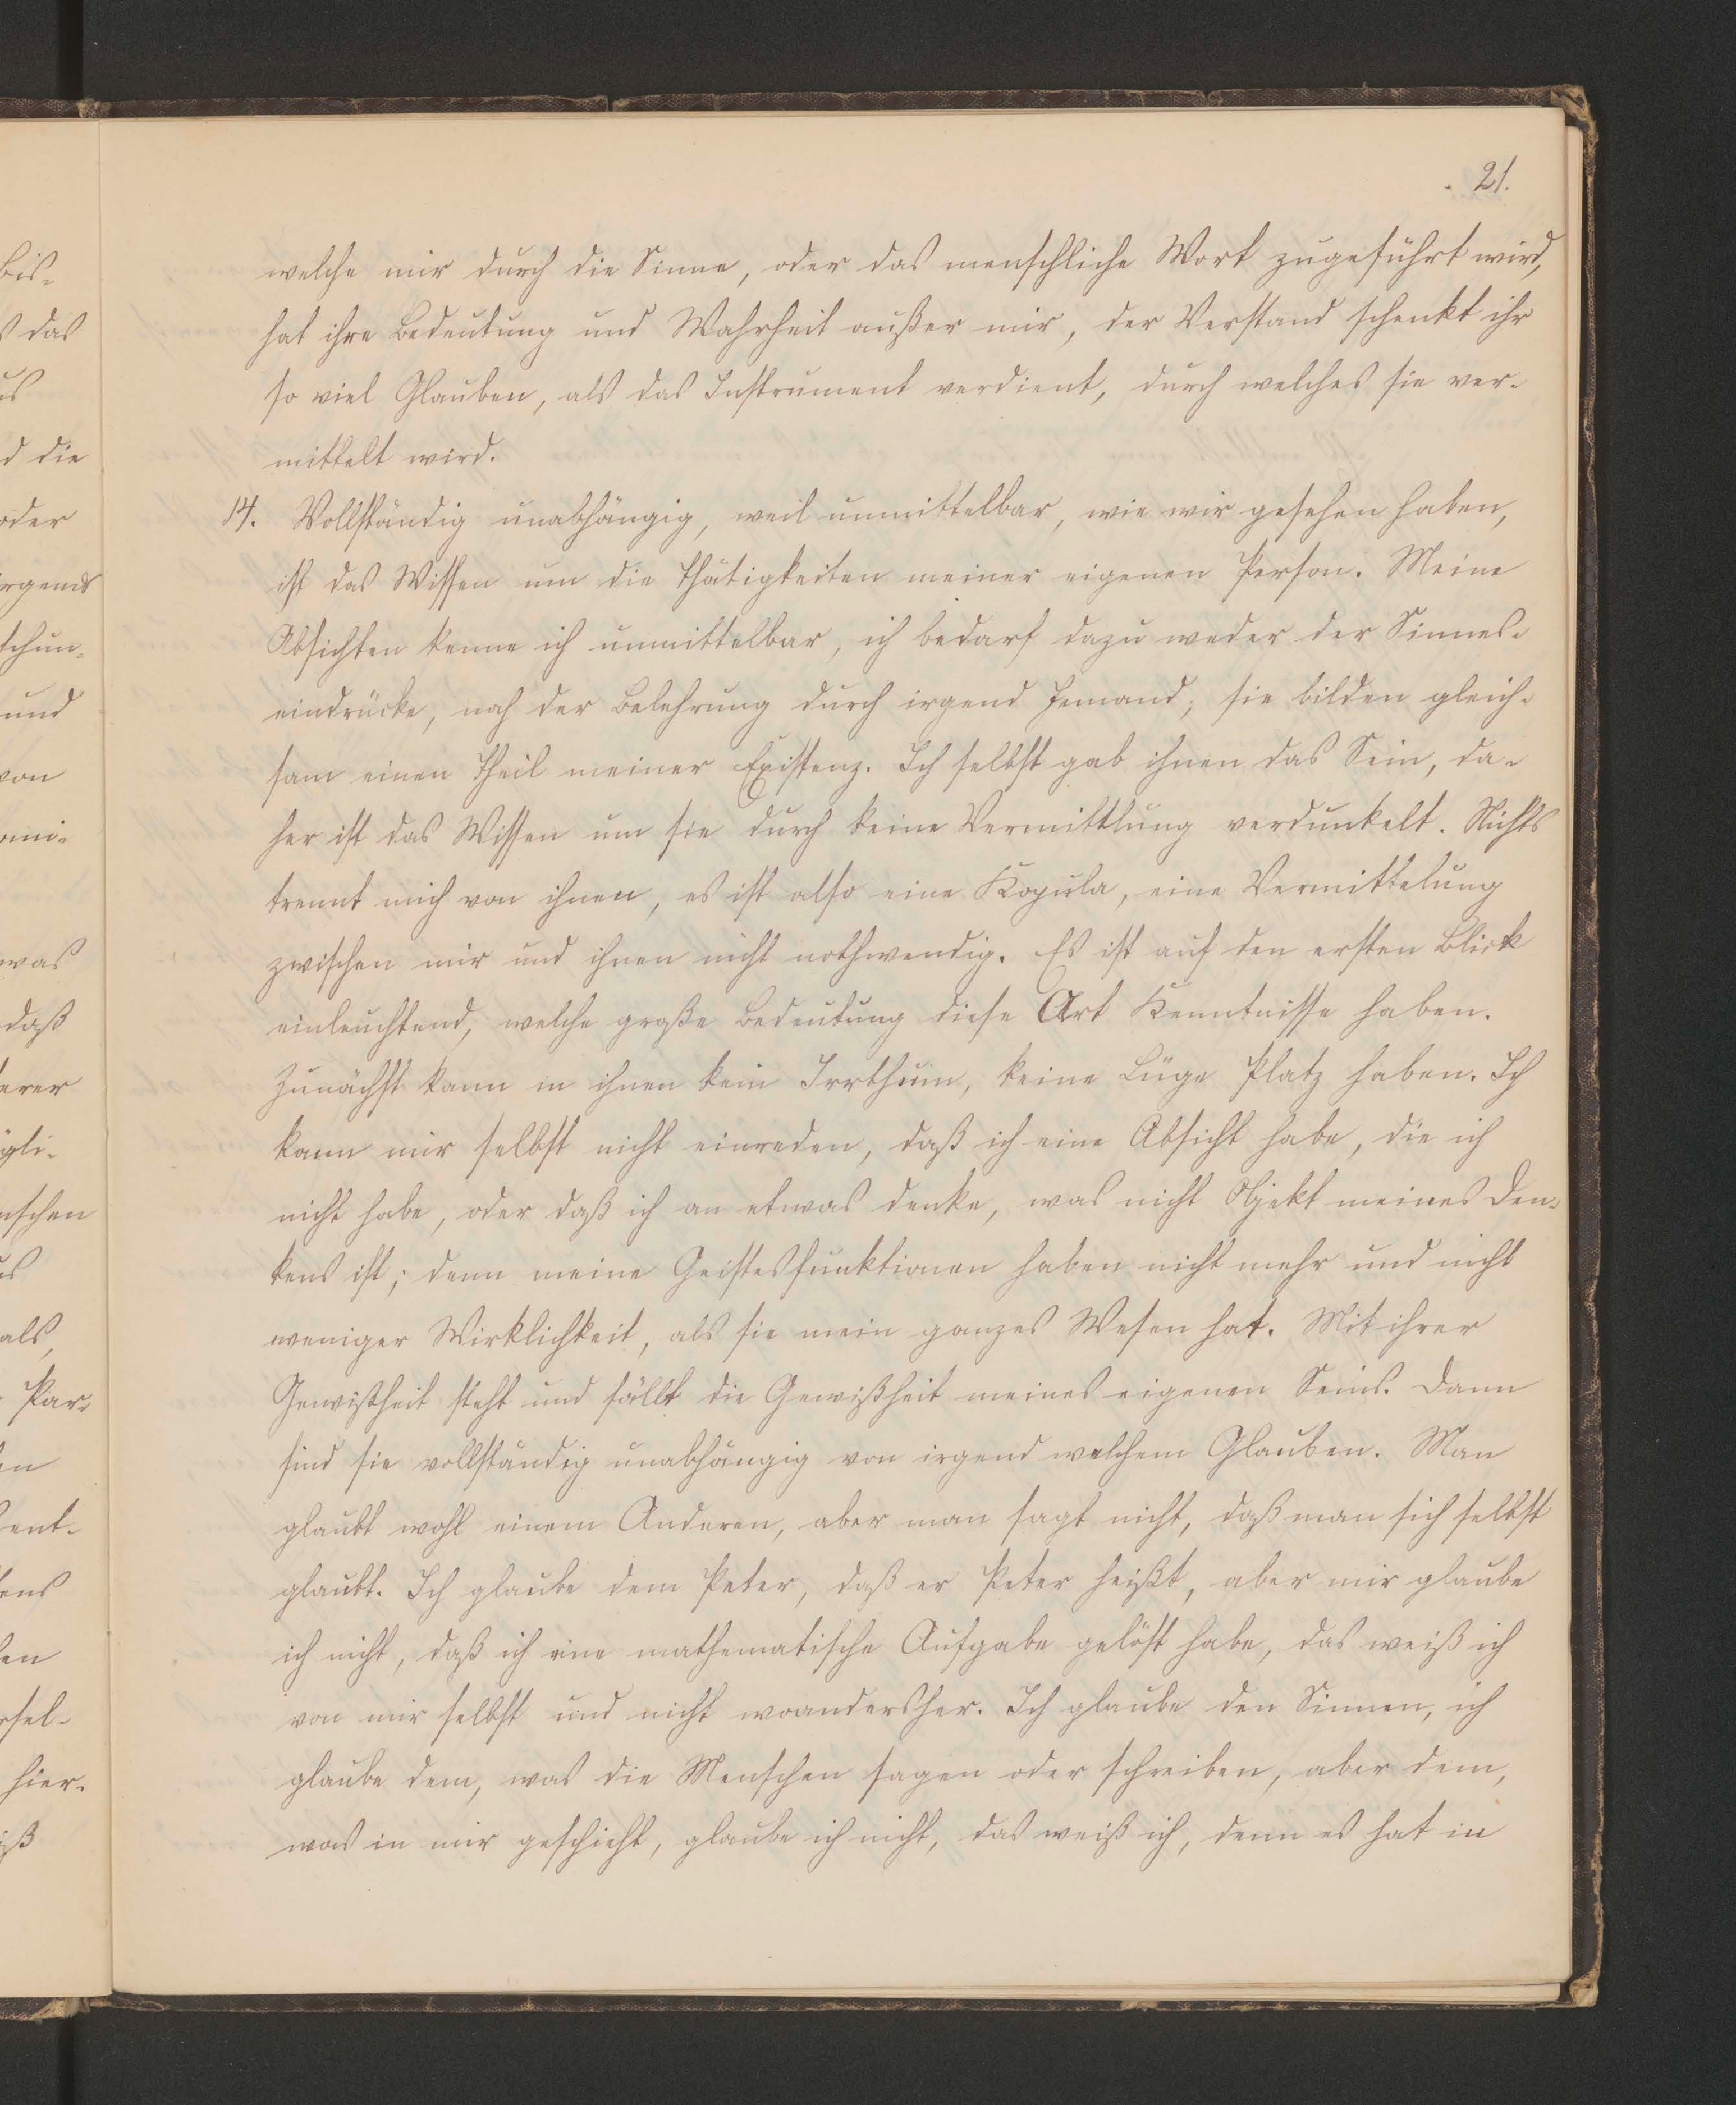 21.
welche mir durch die Sinne, oder das menschliche Wort zugeführt wird,
hat ihre Bedeutung und Wahrheit außer mir, der Verstand schenkt ihr
so viel Glauben, als das Instrument verdient, durch welches sie ver-
mittelt wird.
14. Vollständig unabhängig, weil unmittelbar, wie wir gesehen haben,
ist das Wissen um die Thätigkeiten meiner eigenen Person. Meine
Absichten kenne ich unmittelbar, ich bedarf dazu weder der Sinnes-
eindrücke, noch der Belehrung durch irgend Jemand; sie bilden gleich-
sam einen Theil meiner Existenz. Ich selbst gab ihnen das Sein, da-
her ist das Wissen um sie durch keine Vermittlung verdunkelt. Nichts
trennt mich von ihnen, es ist also eine Kopula, eine Vermittelung
zwischen mir und ihnen nicht nothwendig. Es ist auf den ersten Blick
einleuchtend, welche große Bedeutung diese Art Kenntnisse haben.
Zunächst kann in ihnen kein Irrthum, keine Lüge Platz haben. Ich
kann mir selbst nicht einreden, daß ich eine Absicht habe, die ich
nicht habe, oder daß ich an etwas denke, was nicht Objekt meines Den-
kens ist; denn meine Geistesfunktionen haben nicht mehr und nicht
weniger Wirklichkeit, als sie mein ganzes Wesen hat. Mit ihrer
Gewißheit steht und fällt die Gewißheit meines eigenen Seins. Dann
sind sie vollständig unabhängig von irgend welchem Glauben. Man
glaubt wohl einem Anderen, aber man sagt nicht, daß man sich selbst
glaubt. Ich glaube dem Peter, daß er Peter heißt, aber mir glaube
ich nicht, daß ich eine mathematische Aufgabe gelöst habe, das weiß ich
von mir selbst und nicht woandersher. Ich glaube den Sinnen, ich
glaube dem, was die Menschen sagen oder schreiben, aber dem,
was in mir geschieht, glaube ich nicht, das weiß ich, denn es hat in